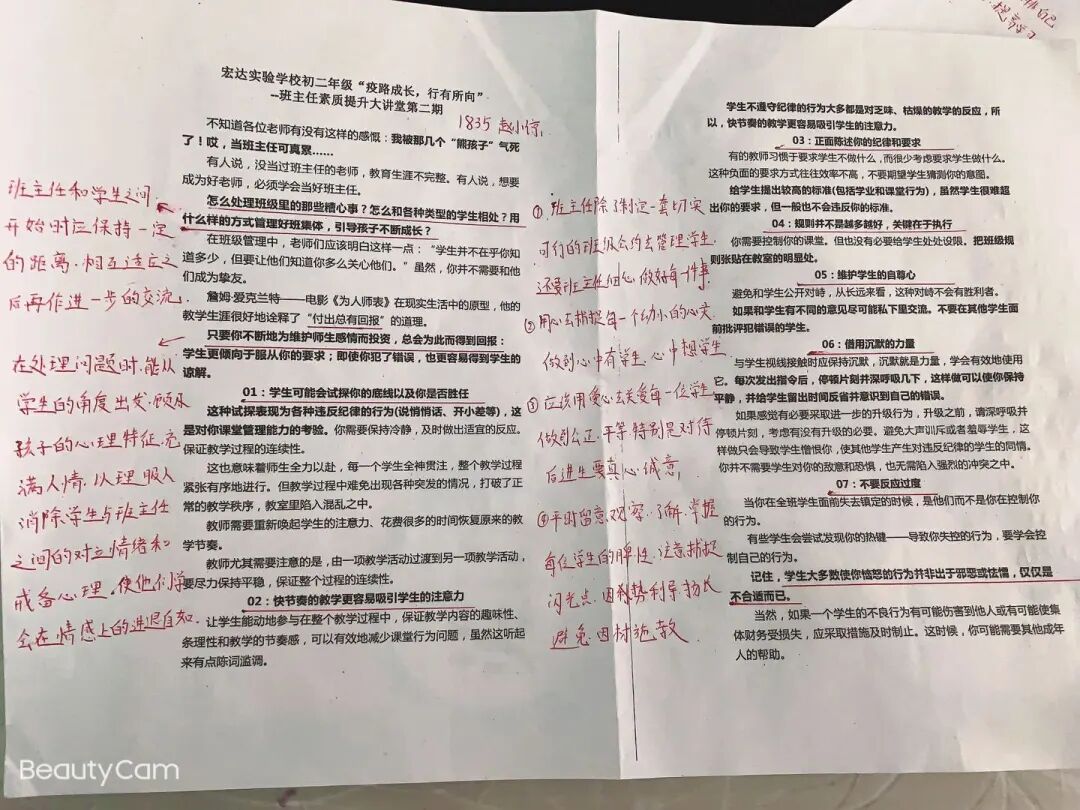 宏达实验学校初二年级“疫路成长，行有所向”
--班主任素质提升大讲堂第二期
1835 赵小惊
不知道各位老师有没有这样的感慨：我被那几个“熊孩子”气死
了！哎，当班主任可真累……
有人说，没当过班主任的老师，教育生涯不完整。有人说，想要
成为好老师，必须学会当好班主任。
怎么处理班级里的那些糟心事？怎么和各种类型的学生相处？用
什么样的方式管理好班集体，引导孩子不断成长？
在班级管理中，老师们应该明白这样一点：“学生并不在乎你知
道多少，但要让他们知道你多么关心他们。”虽然，你并不需要和他
们成为挚友。
詹姆·爱克兰特——电影《为人师表》在现实生活中的原型，他的
教学生涯很好地诠释了“付出总有回报”的道理。
只要你不断地为维护师生感情而投资，总会为此而得到回报：
学生更倾向于服从你的要求；即使你犯了错误，也更容易得到学生的
谅解。
01：学生可能会试探你的底线以及你是否胜任
这种试探表现为各种违反纪律的行为(说悄悄话、开小差等)，这
是对你课堂管理能力的考验。你需要保持冷静，及时做出适宜的反应。
保证教学过程的连续性。
这也意味着师生全力以赴，每一个学生全神贯注，整个教学过程
紧张有序地进行。但教学过程中难免出现各种突发的情况，打破了正
常的教学秩序，教室里陷入混乱之中。
教师需要重新唤起学生的注意力、花费很多的时间恢复原来的教
学节奏。
教师尤其需要注意的是，由一项教学活动过渡到另一项教学活动，
要尽力保持平稳，保证整个过程的连续性。
02：快节奏的教学更容易吸引学生的注意力
让学生能动地参与在整个教学过程中，保证教学内容的趣味性、
条理性和教学的节奏感，可以有效地减少课堂行为问题，虽然这听起
来有点陈词滥调。
班主任和学生之间
开始时应保持一定
的距离，相互适应之
后再作进一步的交流
在处理问题时，能从
学生的角度出发，顾及
孩子的心理特征，充
满人情，以理服人
消除学生与班主任
之间的对立情绪和
戒备心理，使他们学
会在情感上的进退自如.
① 班主任除了制定一套切实
可行的班级公约去管理学生，
还要班主任细心做好每一件事
②用心去捕捉每一个幼小的心灵
做到心中有学生，心中想学生
③ 应该用爱心去关爱每一位学生
做到公正、平等，特别是对待
后进生要真心、诚意，
④平时留意观察、了解、掌握
每位学生的脾性，注意捕捉
闪光点，因材势利导，扬长
避免，因材施教
学生不遵守纪律的行为大都是对乏味、枯燥的教学的反应，所
以，快节奏的教学更容易吸引学生的注意力。
03：正面陈述你的纪律和要求
有的教师习惯于要求学生不做什么，而很少考虑要求学生做什么。
这种负面的要求方式往往效率不高，不要期望学生猜测你的意图。
给学生提出较高的标准(包括学业和课堂行为)，虽然学生很难超
出你的要求，但一般也不会违反你的标准。
04：规则并不是越多越好，关键在于执行
你需要控制你的课堂。但也没有必要给学生处处设限。把班级规
则张贴在教室的明显处。
05：维护学生的自尊心
避免和学生公开对峙，从长远来看，这种对峙不会有胜利者。
如果和学生有不同的意见尽可能私下里交流。不要在其他学生面
前批评犯错误的学生。
06：借用沉默的力量
与学生视线接触时应保持沉默，沉默就是力量，学会有效地使用
它。每次发出指令后，停顿片刻并深呼吸几下，这样做可以使你保持
平静，并给学生留出时间反省并意识到自己的错误。
如果感觉有必要采取进一步的升级行为，升级之前，请深呼吸并
停顿片刻，考虑有没有升级的必要。避免大声训斥或者羞辱学生，这
样做只会导致学生憎恨你，使其他学生产生对违反纪律的学生的同情。
你并不需要学生对你的敌意和恐惧，也无需陷入强烈的冲突之中。
07：不要反应过度
当你在全班学生面前失去镇定的时候，是他们而不是你在控制你
的行为。
有些学生会尝试发现你的热键——导致你失控的行为，要学会控
制自己的行为。
记住，学生大多数使你愤怒的行为并非出于邪恶或怯懦，仅仅是
不合适而已。
当然，如果一个学生的不良行为有可能伤害到他人或有可能使集
体财务受损失，应采取措施及时制止。这时候，你可能需要其他成年
人的帮助。
BeautyCam